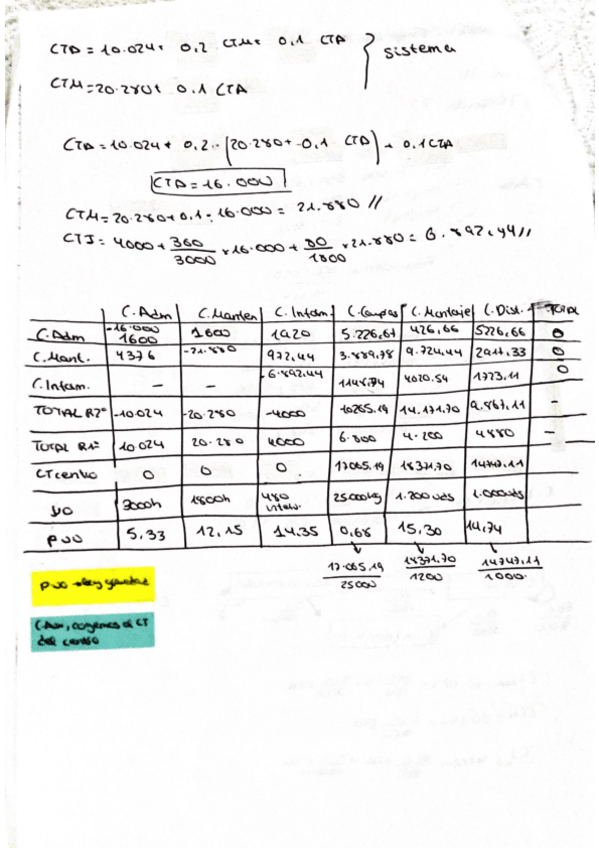 CTA = 10.024 + 0,2 CTM + 0,1 CTA
sistema
CTM = 20.280 + 0.1 CTA
CTA = 10.024 + 0,2 · (20.280 + 0,1 CTA) + 0,1 CTA
CTA = 16.000
CTM = 20.280 + 0,1 · 16.000 = 21.880 //
CTI = 4000 + 360/3000 × 16.000 + 80/1800 × 21.880 = 6.892,44 //
C. Adm C. Manten C. Inform. C. Compras C. Montaje C. Dist. TOTAL
C. Adm -16.000 1600 1600 1920 5.226,67 426,66 5226,66 0
C. Mant. 4376 -21.880 972,44 3.889,78 9.724,44 2917,33 0
C. Inform. - - -6.892,44 1148,74 4020.54 1723,11 0
TOTAL R2º -10.024 -20.280 -4000 10265.19 14.171,70 9.867,11 -
TOTAL R1º 10.024 20.280 4000 6.800 4.200 4880 -
CT centro 0 0 0 17065,19 18371,70 14747,11
UO 3000h 1800h 480 25000kg 1.200 uds 1.000 uds
PUO 5,33 12,15 14,35 0,68 15,30 14,74
17.065,19/25000 18371,70/1200 14747,11/1000.
PUO
C. Adm, cogemos el CT
del centro